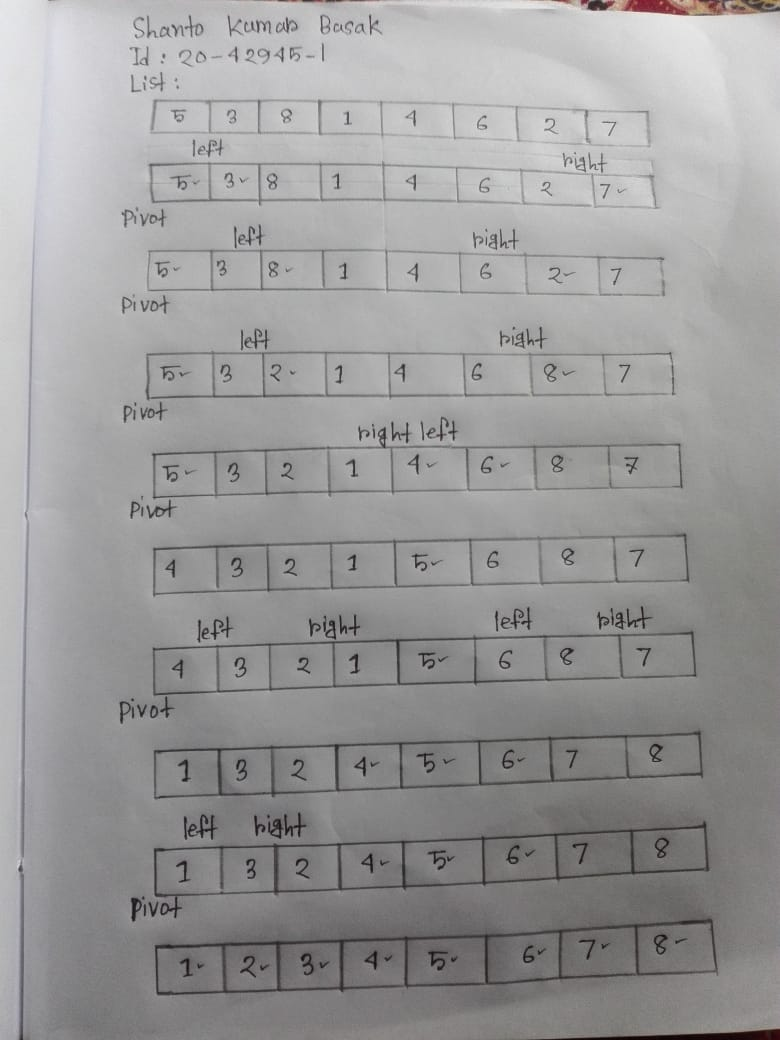 Shanto Kumar Basak
Id : 20-42945-1
List :
5 3 8 1 4 6 2 7
left right
5 3 8 1 4 6 2 7
Pivot
left right
5 3 8 1 4 6 2 7
Pivot
left right
5 3 2 1 4 6 8 7
Pivot
right left
5 3 2 1 4 6 8 7
Pivot
4 3 2 1 5 6 8 7
left right left right
4 3 2 1 5 6 8 7
Pivot
1 3 2 4 5 6 7 8
left right
1 3 2 4 5 6 7 8
Pivot
1 2 3 4 5 6 7 8